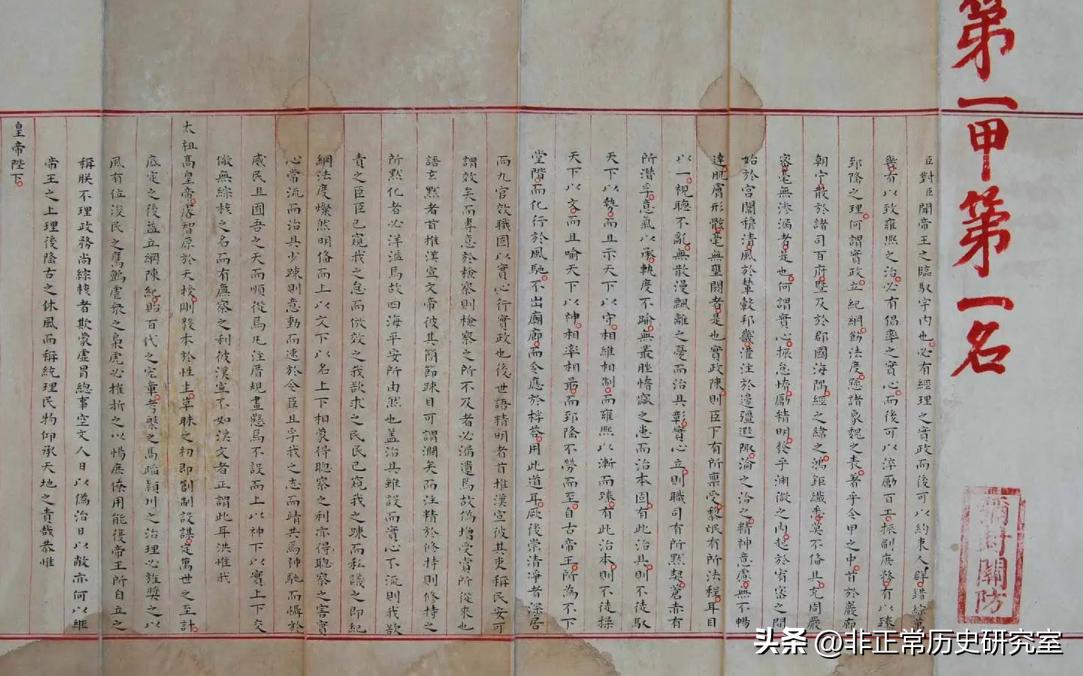 第一甲第一名
彌封關防
臣對臣聞帝王之臨馭宇内也必有經理之實政而後可以約束人群錯綜萬
機有以致雍熙之治必有倡率之實心而後可以淬勵百工振刷庶務有以臻
郅隆之理何謂實政立紀綱飭法度懸諸象魏之表著乎令甲之中首於巖廊
朝宁散於諸司百府暨及於郡國海隅經之緯之鴻鉅纖悉莫不備具充周嚴
密毫無滲漏者是也何謂實心振怠惰勵精明發乎淵微之内起於宥密之間
始於宮闈穆清風於輦轂邦畿灌注於邊疆遐陬淪之洽之精神意慮無不暢
達肌膚形骸毫無壅閼者是也實政陳則臣下有所稟受黎氓有所法程耳目
以一視聽不亂無散漫飄離之憂而治具彰實心立則職司有所默契蒼赤有
所潛孚意氣以承軌度不踰無叢脞惰窳之患而治本固有此治具則不徒馭
天下以勢而且示天下以守相維相制而雍熙以漸而臻有此治本則不徒操
天下以文而且喻天下以神相率相勗而郅隆不勞而至自古帝王所為不下
堂階而化行於風馳不出廟廊而令應於桴答用此道耳厥後崇清淨者深居
而九官效職固以實心行實政也後世語精明者首推漢宣彼其吏稱民安可
謂效矣而專意於檢察則檢察之所不及者必漏遺焉故偽增受賞所從來也
語玄默者首推漢宣文帝彼其簡節疎目可謂濶矣而注精於修持則修持之
所默化者必洋溢焉故四海平安所由然也蓋治具雖設而實心不流則我欲
責之臣臣已窺我之怠而倣效之我欲求之民民已窺我之疎而私議之即紀
綱法度燦然明備而上以文下以名上下相蒙得聰察之利亦得聰察之害實
心常流而治具少疎則意動而速於令臣且孚我之志而靖共焉神馳而懾於
威民且囿吾之天而順從焉凡注厝規畫懸焉不設而上以神下以實上下交
儆無綜核之名而有廉察之利彼漢宣不如漢文者正謂此耳洪惟我
太祖高皇帝睿智原於天授剛毅本於性生草昧之初即創制設謀定萬世之至計
底定之後益立綱陳紀貽百代之定章槃之蹈潁川之治理必旌獎之以
風有位浚民之鷹鸇虐衆之梟虎必摧折之以惕庶僚用能後帝王所自立之
稱朕不理政務尚綜核者欺蒙虛冒總事空文人日以偽治日以敝亦何以繼
帝王之上理後隆古之休風而稱統理民物仰承天地之責哉恭惟
皇帝陛下
头条 @非正常历史研究室